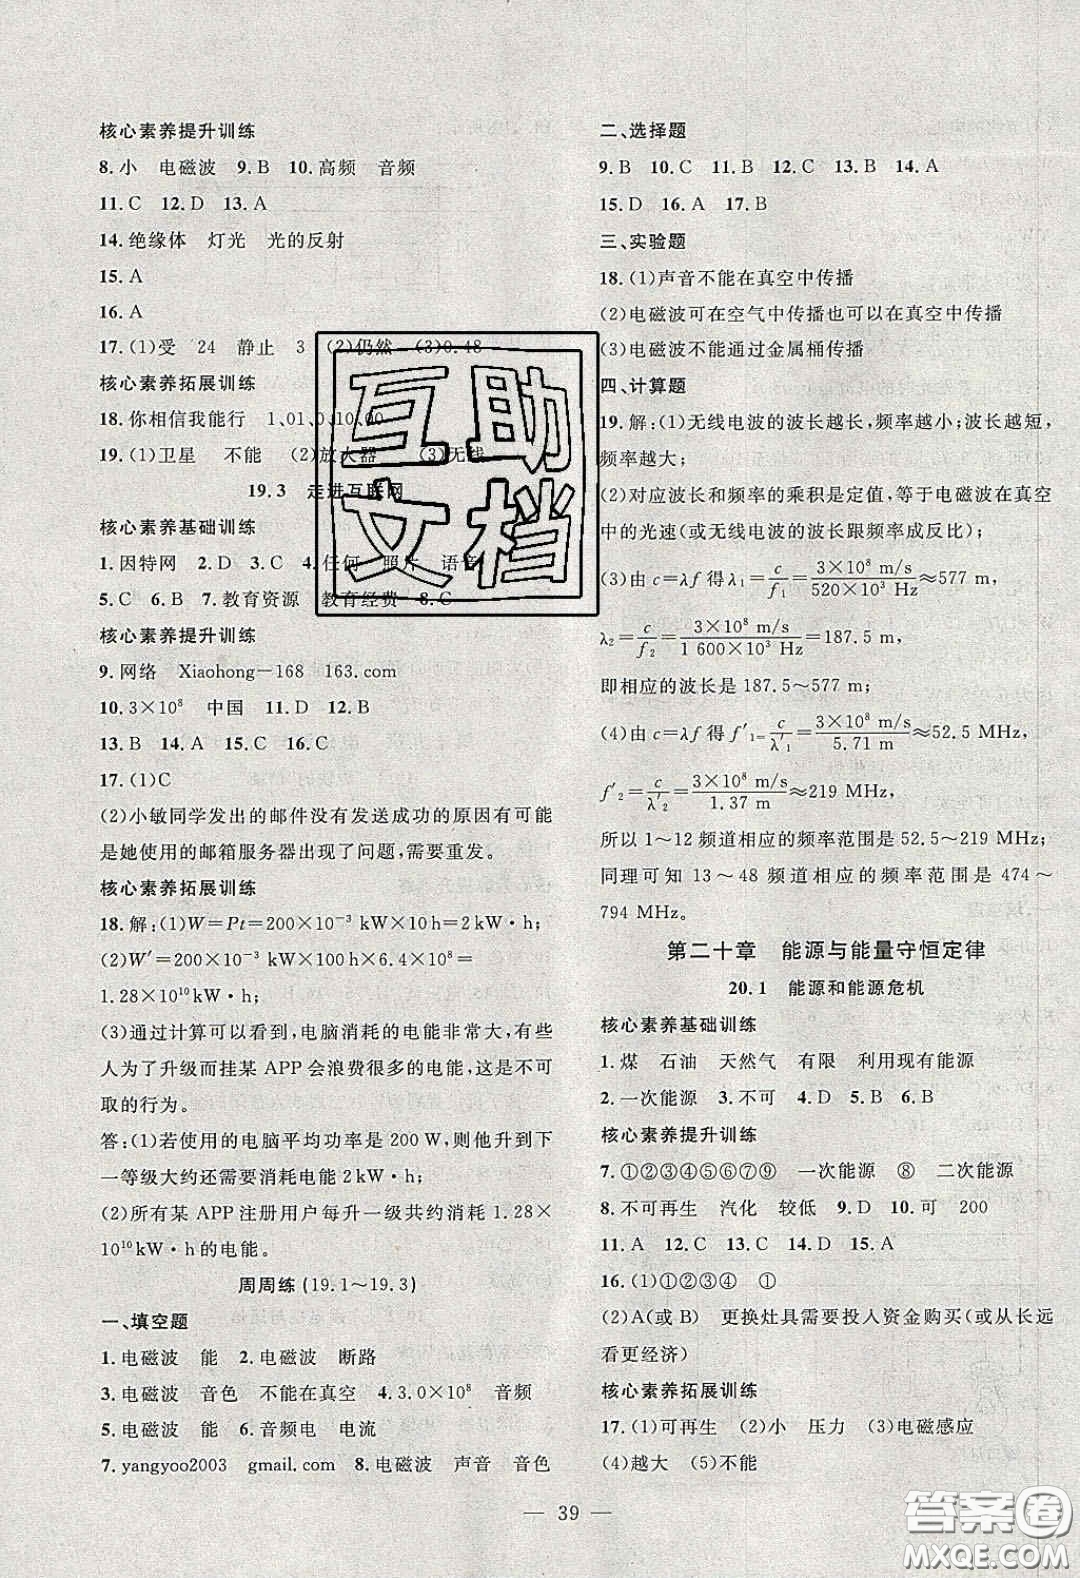 核心素养提升训练
8.小　电磁波　9.B　10.高频　音频
11.C　12.D　13.A
14.绝缘体　灯光　光的反射
15.A
16.A
17.(1)受　24　静止　3　(2)仍然　(3)0.48
核心素养拓展训练
18.你相信我能行　1、01、0、10、00
19.(1)卫星　不能　(2)放大器　(3)无线
19.3　走进互联网
核心素养基础训练
1.因特网　2.D　3.C　4.任何　照片　语音
5.C　6.B　7.教育资源　教育经费　8.C
核心素养提升训练
9.网络　Xiaohong—168　163.com
10.3×10⁸　中国　11.D　12.B
13.B　14.A　15.C　16.C
17.(1)C
(2)小敏同学发出的邮件没有发送成功的原因有可能
是她使用的邮箱服务器出现了问题,需要重发。
核心素养拓展训练
18.解:(1)W=Pt=200×10⁻³ kW×10 h=2 kW·h;
(2)W′=200×10⁻³ kW×10 h×6.4×10⁹=
1.28×10¹⁰kW·h;
(3)通过计算可以看到,电脑消耗的电能非常大,有些
人为了升级而挂某 APP 会浪费很多电能,这是不可
取的行为。
答:(1)若使用的电脑平均功率是 200 W,则他升到下
一等级大约还需要消耗电能 2 kW·h;
(2)所有某 APP 注册用户每升一级共约消耗 1.28×
10¹⁰kW·h 的电能。
周周练(19.1～19.3)
一、填空题
1.电磁波　能　2.电磁波　断路
3.电磁波　音色　不能在真空　4.3.0×10⁸　音频
5.电磁波　能　6.音频电　电流
7.yangyoo2003　gmail.com　8.电磁波　声音　音色
二、选择题
9.B　10.C　11.B　12.C　13.B　14.A
15.D　16.A　17.B
三、实验题
18.(1)声音不能在真空中传播
(2)电磁波可在空气中传播也可以在真空中传播
(3)电磁波不能通过金属桶传播
四、计算题
19.解:(1)无线电波的波长越长,频率越小;波长越短,
频率越大;
(2)对应波长和频率的乘积是定值,等于电磁波在真空
中的光速(或无线电波的波长跟频率成反比);
(3)由 c=λf 得 λ₁=c/f₁=3×10⁸ m/s/520×10³ Hz≈577 m,
λ₂=c/f₂=3×10⁸ m/s/1 600×10³ Hz=187.5 m,
即相应的波长是 187.5～577 m;
(4)由 c=λf 得 f′₁=c/λ′₁=3×10⁸ m/s/5.71 m≈52.5 MHz,
f′₂=c/λ′₂=3×10⁸ m/s/1.37 m≈219 MHz,
所以 1～12 频道相应的频率范围是 52.5～219 MHz;
同理可知 13～48 频道相应的频率范围是 474～
794 MHz。
第二十章　能源与能量守恒定律
20.1　能源和能源危机
核心素养基础训练
1.煤　石油　天然气　有限　利用现有能源
2.一次能源　3.不可　4.D　5.D　6.B
核心素养提升训练
7.①②③④⑤⑥⑦⑨　一次能源　⑧　二次能源
8.不可再生　汽化　较低　9.D　10.可　200
11.A　12.C　13.C　14.D　15.A
16.(1)①②③④　①
(2)A(或 B)　更换灶具需要投入资金购买(或从长远
看更经济)
核心素养拓展训练
17.(1)可再生　(2)小　压力　(3)电磁感应
(4)越大　(5)不能
— 39 —
互助
文档
答案圈
MXQE.COM